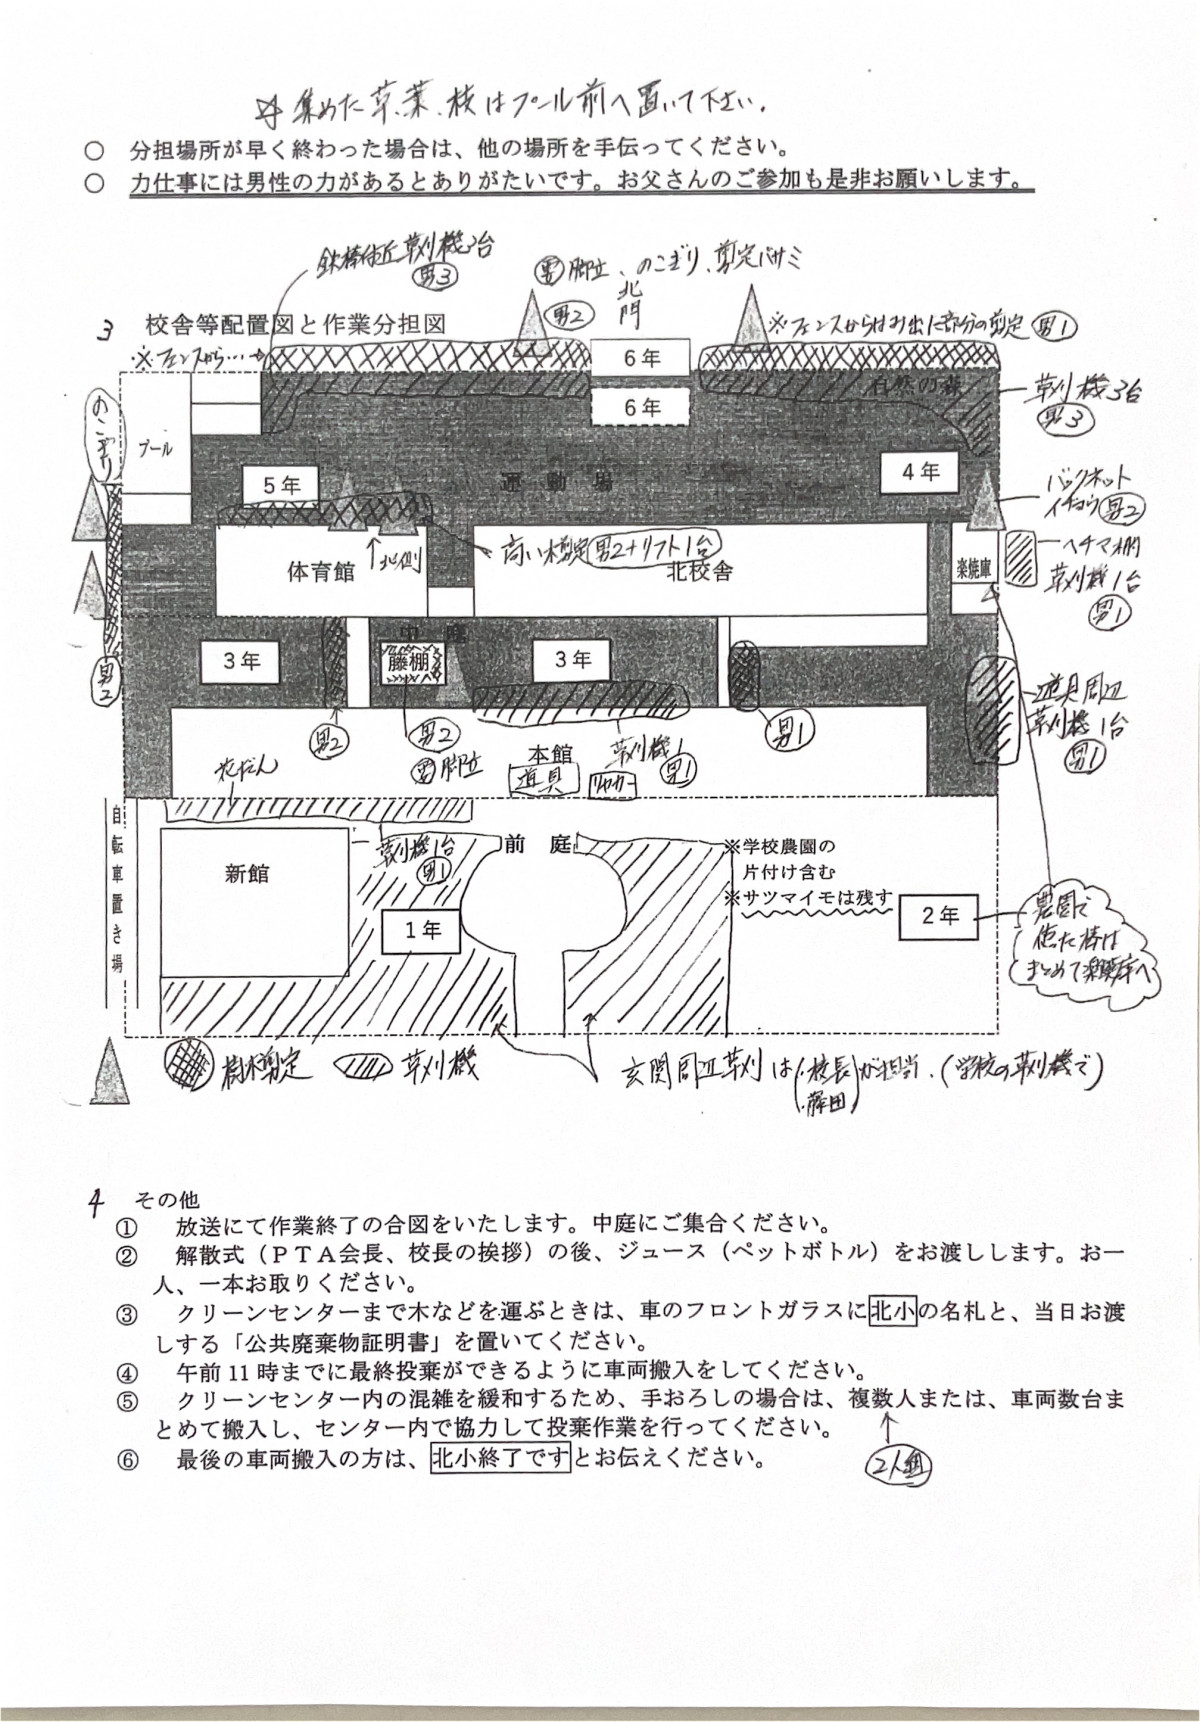 ☆ 集めた草、葉、枝はプール前へ置いて下さい。
○ 分担場所が早く終わった場合は、他の場所を手伝ってください。
○ 力仕事には男性の力があるとありがたいです。お父さんのご参加も是非お願いします。
鉄棒付近草刈機3台
男3
脚立、のこぎり、剪定バサミ
男2
北門
3 校舎等配置図と作業分担図
※フェンスからはみ出た部分の剪定 男1
※フェンスから…→
6年
6年
自然の森
草刈機3台
男3
のこぎり
プール
5年
運動場
4年
バックネット
イチョウ 男2
↑北側
高い木剪定 男2+リフト1台
体育館
北校舎
楽焼庫
ヘチマ棚
草刈機1台
男1
中庭
3年
藤棚
3年
男2
遊具周辺
草刈機1台
男1
男2
男2
脚立
本館
道具
草刈機1
男1
男1
花だん
自転車置き場
草刈機1台
男1
新館
前庭
※学校農園の
片付け含む
※サツマイモは残す
1年
2年
農園で
使った棒は
まとめて楽焼庫へ
樹木剪定
草刈機
玄関周辺草刈は(・校長 ・藤田)が担当。(学校の草刈機で)
4 その他
① 放送にて作業終了の合図をいたします。中庭にご集合ください。
② 解散式（ＰＴＡ会長、校長の挨拶）の後、ジュース（ペットボトル）をお渡しします。お一
人、一本お取りください。
③ クリーンセンターまで木などを運ぶときは、車のフロントガラスに北小の名札と、当日お渡
しする「公共廃棄物証明書」を置いてください。
④ 午前11時までに最終投棄ができるように車両搬入をしてください。
⑤ クリーンセンター内の混雑を緩和するため、手おろしの場合は、複数人または、車両数台ま
とめて搬入し、センター内で協力して投棄作業を行ってください。
⑥ 最後の車両搬入の方は、北小終了ですとお伝えください。
2人組